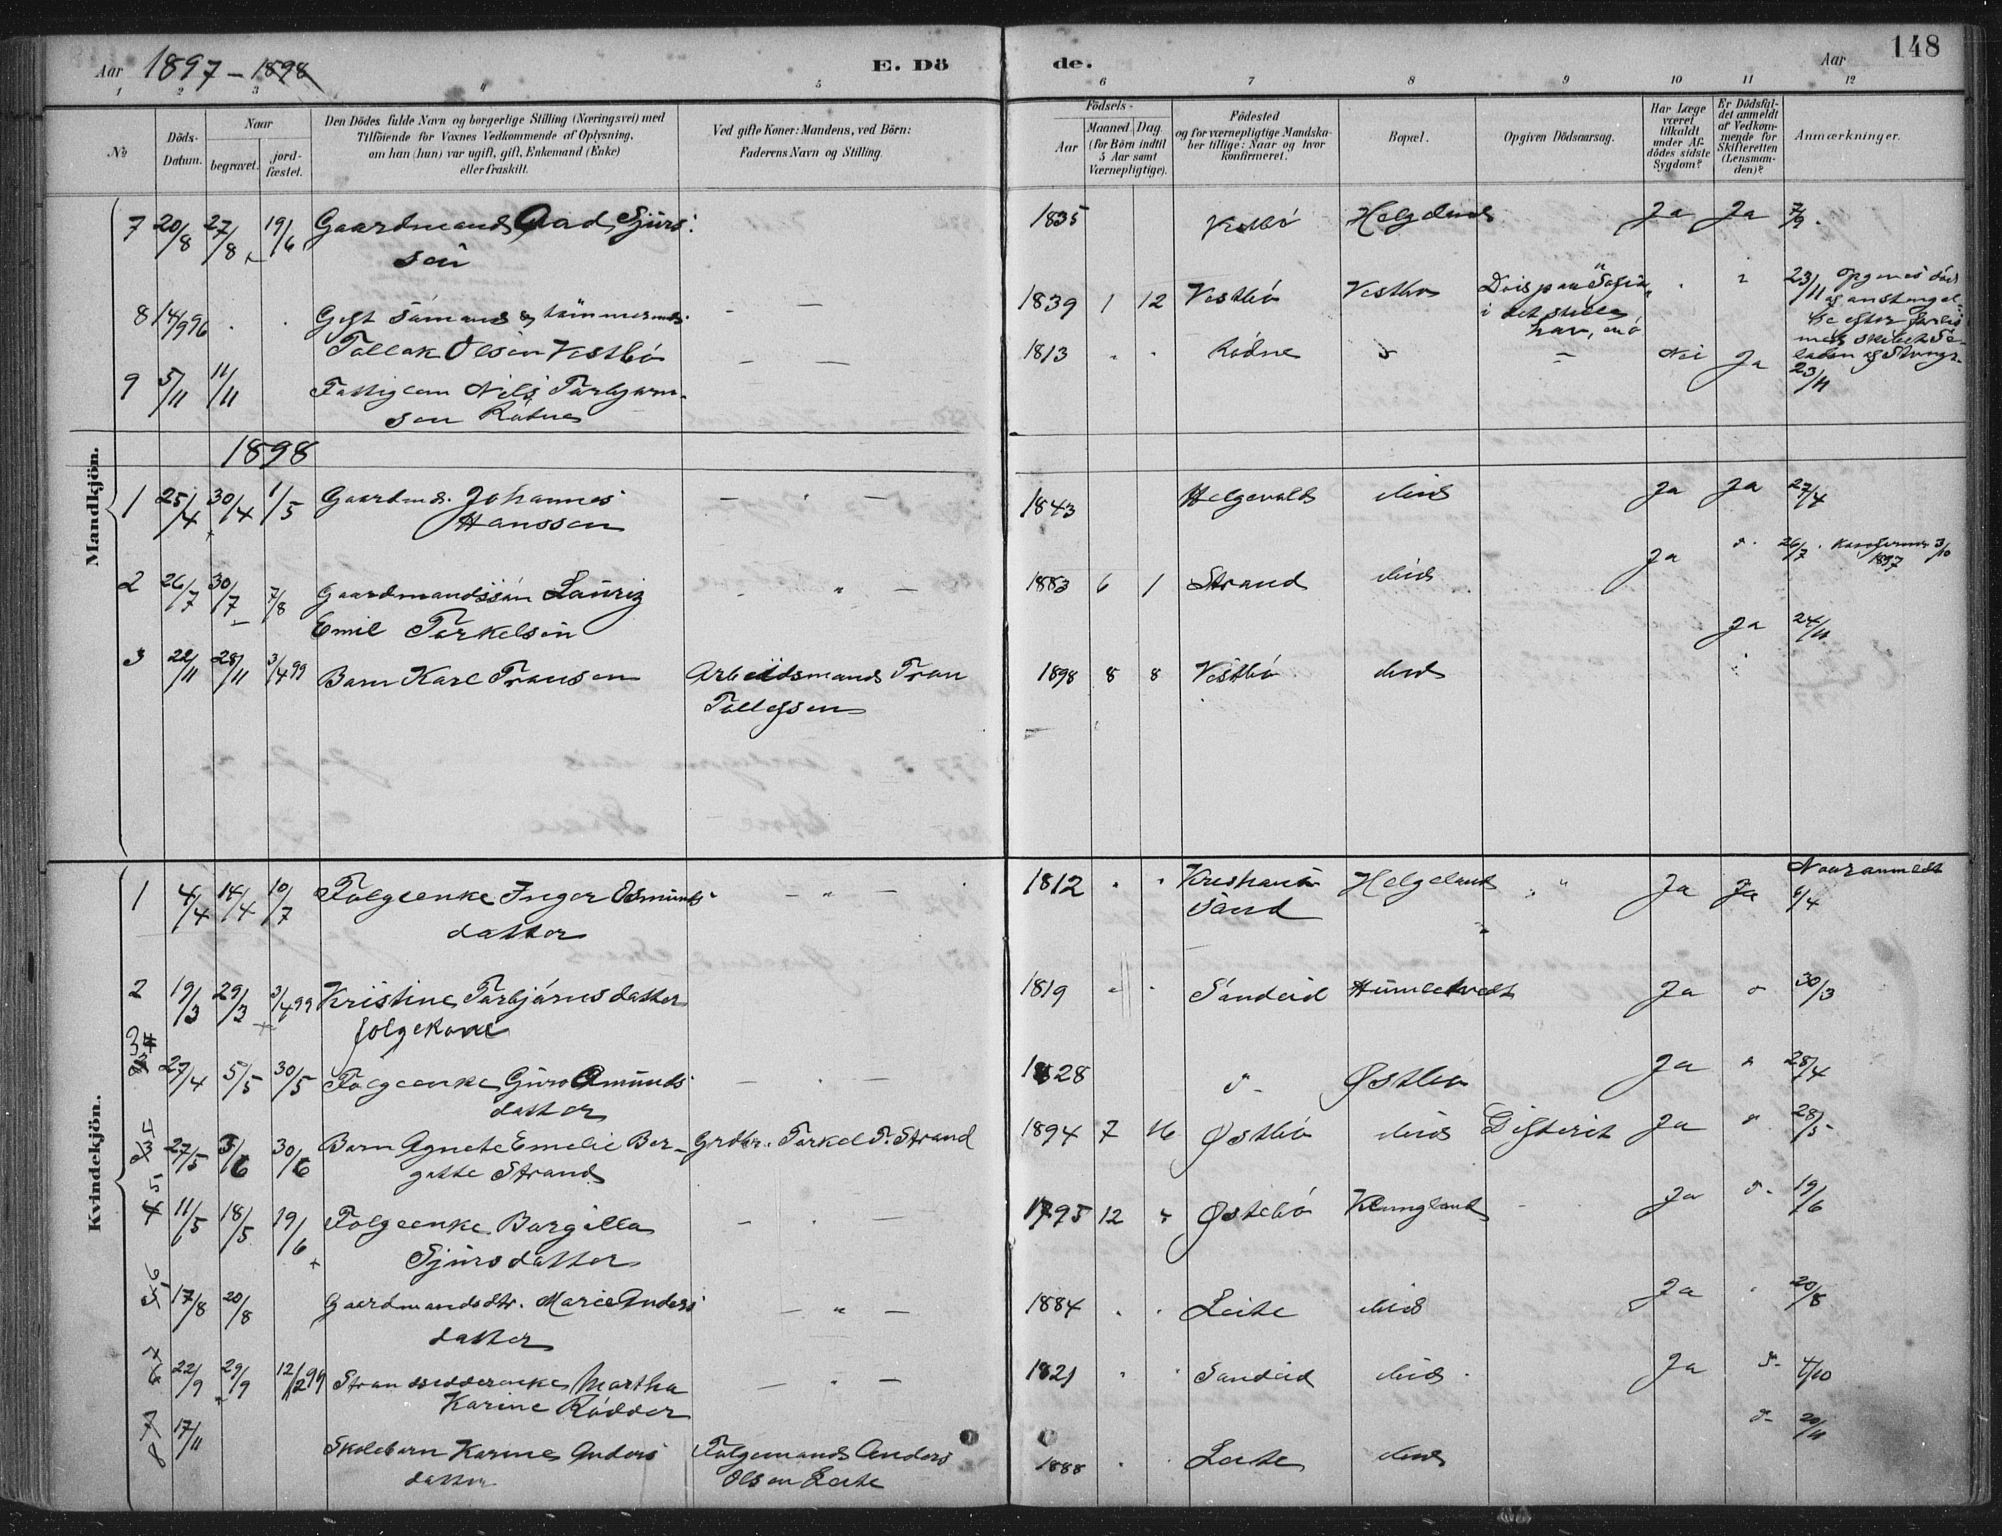 Aar 1897 - 1898
E. Dö
de.
Aar
148
1 2 3 4 5 6 7 8 9 10 11 12
No
Döds-
Datum.
Naar
begravet.
jord-
fæstet.
Den Dödes fulde Navn og borgerlige Stilling (Næringsvei) med
Tilföiende for Voxnes Vedkommende af Oplysning,
om han (hun) var ugift, gift, Enkemand (Enke)
eller fraskilt.
Ved gifte Koner: Mandens, ved Börn:
Faderens Navn og Stilling.
Födsels-
Aar
Maaned. Dag.
(for Börn indtil
5 Aar samt
Værnepligtige).
Födested
og for værnepligtige Mandska-
ber tillige: Naar og hvor
konfirmeret.
Bopæl.
Opgiven Dödsaarsag.
Har Læge
været
tilkaldt
under Af-
dödes sidste
Sygdom?
Er Dödsfal-
det anmeldt
af Vedkom-
mende for
Skifteretten
(Lensman-
den)?
Anmærkninger.
Mandkjön.
7 20/8 27/8 19/6 Gaardmand Aad Sjurs- 1835 Vestbö Helgeland Ja Ja 7/9
sön
8 14/9 96 Gift Sömand & tömmermd. 1839 1 12 Vestbö Vestbö 23/11
Tollak Olsen Vestbö
9 5/11 11/11 Fattiglem Nils Torbjørn- 1813 Rödne Nei Ja 23/11
sen Rödne
1898
1 25/4 30/4 1/5 Gaardmd. Johannes 1843 Helgevold ibid Ja Ja 27/4
Hanssen
2 26/7 30/7 7/8 Gaardmandssön Lauriz 1883 6 1 Strand ibid Ja 26/7 Konfirmer 3/10
1897
Emil Torkelsen
3 22/11 28/11 3/4 99 Barn Karl Transen Arbeidsmand Tran 1898 8 8 Vestbö ibid Ja 24/11
Tollefsen
Kvindekjön.
1 4/4 14/4 10/7 Folgeenke Inger Osmunds- 1812 Kristian Helgeland Ja Ja 6/4
datter sand
2 19/3 29/3 3/4 99 Kristine Torbjörnsdatter 1819 Sandeid Humletvedt Ja 30/3
folgekone
3 27/4 5/5 30/5 Folgeenke Guro Omunds- 1828 Østbö Ja 28/4
datter
27/5 5/6 30/6 Barn Agnete Emelie Ber- Grdbr. Torkel T. Strand 1894 7 16 Østbö ibid Difterit Ja 28/5
gitte Strand
5 11/5 18/5 19/6 Folgeenke Borgilla 1795 12 Østebö Klungland Ja 19/6
Sjursdatter
6 17/8 20/8 Gaardmandsdtr. Marie Anders- 1884 Leite ibid Ja 20/8
datter
7 22/9 29/9 12/2 99 Strandsidderenke Martha 1821 Sandeid ibid Ja 4/10
Karine Rödder
8 17/11 Skolebarn Karine Anders Folgemand Anders 1888 Leite ibid 20/11
datter Olsen Leite